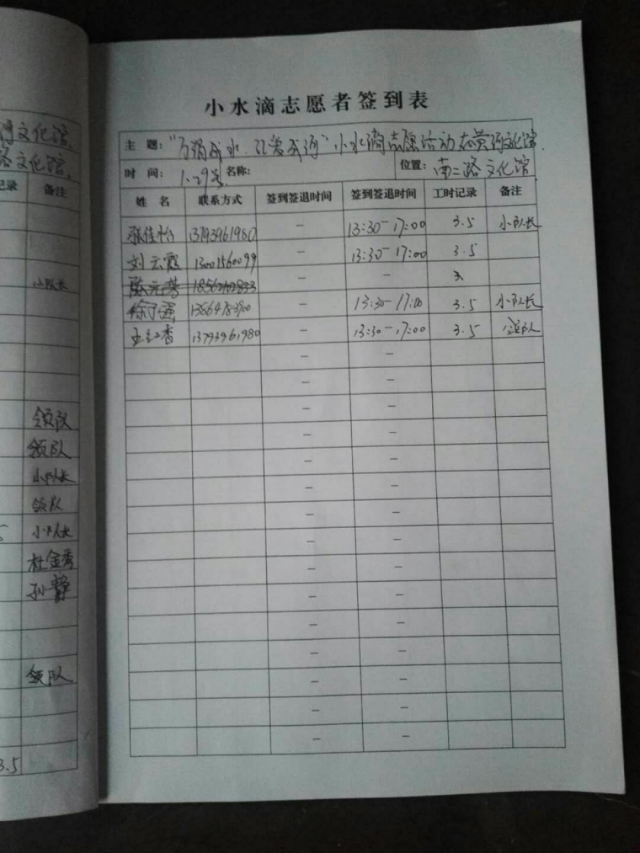 小水滴志愿者签到表
主 题：“万滴成水、以爱成河”小水滴志愿活动在黄河文化馆.
时 间： 1.29号 名称： 位置：南二路文化馆
姓 名 联系方式 签到签退时间 签到签退时间 工时记录 备注
张佳怡 13793961980 — 13:30-17:00 3.5 小队长
刘云霞 13001560099 — 13:30-17:00 3.5
— —
徐子涵 — 13:30-17:00 3.5 小队长
王红香 13793961980 — 13:30-17:00 3.5 领队
文化馆.
路文化馆.
记录 备注
小队长
领队
领队
小队长
领队
小队长
杜金秀
孙静
领队
3.5